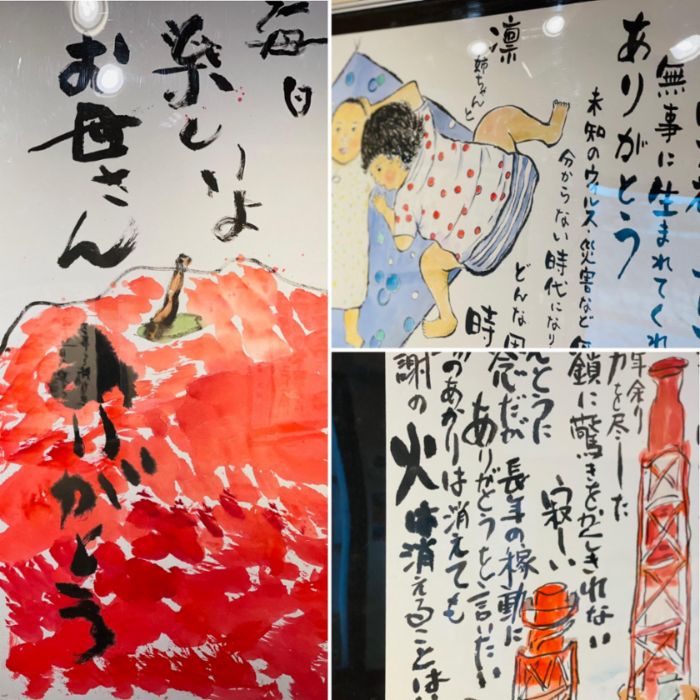 毎日
楽しいよ
お母さん
ありがとう
無事に生まれてくれ
ありがとう
未知のウィルス災害など
分からない時代になり
どんな
時
凛
姉ちゃんと
年余り
力を尽した
鎖に驚きをかくしきれない
んとうに 寂しい
念だが 長年の稼動に
ありがとうと言いたい
のあかりは消えても
謝の火は消えることは